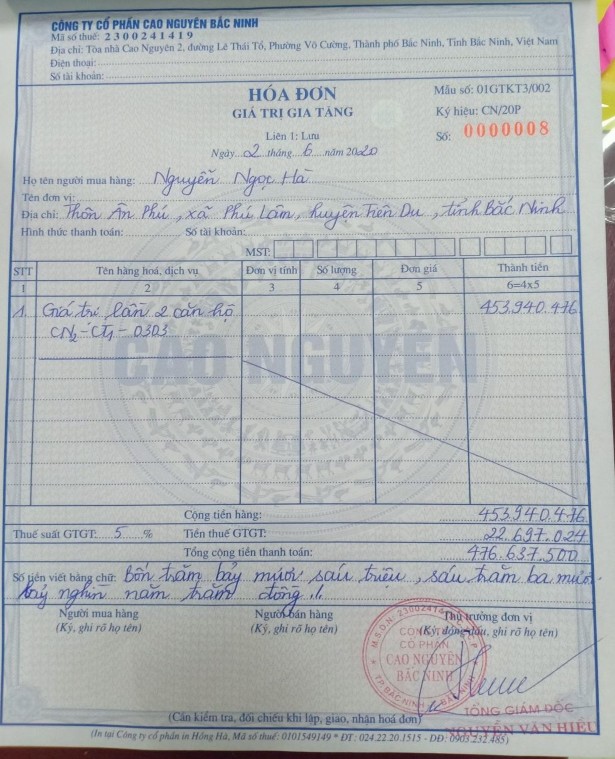 CÔNG TY CỔ PHẦN CAO NGUYÊN BẮC NINH
Mã số thuế: 2 3 0 0 2 4 1 4 1 9
Địa chỉ: Tòa nhà Cao Nguyên 2, đường Lê Thái Tổ, Phường Võ Cường, Thành phố Bắc Ninh, Tỉnh Bắc Ninh, Việt Nam
Điện thoại:
Số tài khoản:
HÓA ĐƠN
GIÁ TRỊ GIA TĂNG
Mẫu số: 01GTKT3/002
Ký hiệu: CN/20P
Liên 1: Lưu
Số: 0000008
Ngày 2 tháng 6 năm 2020
Họ tên người mua hàng: Nguyễn Ngọc Hà
Tên đơn vị:
Địa chỉ: Thôn Ân Phú, xã Phú Lâm, huyện Tiên Du, tỉnh Bắc Ninh
Hình thức thanh toán: Số tài khoản:
MST:
STT Tên hàng hoá, dịch vụ Đơn vị tính Số lượng Đơn giá Thành tiền
1 2 3 4 5 6=4x5
1. Giá trị lần 2 căn hộ 453.940.476
CN2-CT1-0303
CAO NGUYÊN
Cộng tiền hàng: 453.940.476
Thuế suất GTGT: 5 % Tiền thuế GTGT: 22.697.024
Tổng cộng tiền thanh toán: 476.637.500
Số tiền viết bằng chữ: Bốn trăm bảy mươi sáu triệu, sáu trăm ba mươi
bảy nghìn năm trăm đồng ./.
Người mua hàng Người bán hàng Thủ trưởng đơn vị
(Ký, ghi rõ họ tên) (Ký, ghi rõ họ tên) (Ký, đóng dấu, ghi rõ họ tên)
CÔNG TY
CỔ PHẦN
CAO NGUYÊN
BẮC NINH
TỔNG GIÁM ĐỐC
NGUYỄN VĂN HIẾU
(Cần kiểm tra, đối chiếu khi lập, giao, nhận hoá đơn)
(In tại Công ty cổ phần in Hồng Hà, Mã số thuế: 0101549149 * ĐT: 024.22.20.1515 - DĐ: 0903.232.485)